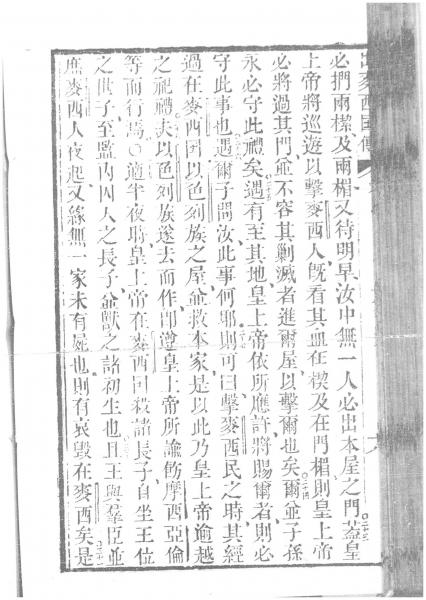 出麥西國傳
必捫兩樑及兩楣又待明早汝中無一人必出本屋之門蓋皇
上帝將巡遊以擊麥西人既看其血在楔及在門楣則皇上帝
必將過其門並不容其剿滅者進爾屋以擊爾也矣爾並子孫
永必守此禮矣遇有至其地皇上帝依所應許將賜爾者則必
守此事也遇爾子問汝此事何耶則可曰擊麥西民之時其經
過在麥西國以色列族之屋並救本家是以此乃皇上帝逾越
之祀禮夫以色列族遂去而作卽遵皇上帝所諭飭摩西亞倫
等而行焉○適半夜時皇上帝在麥西國殺諸長子自坐王位
之世子至監內囚人之長子並獸之諸初生也且王與羣臣並
庶麥西人夜起又緣無一家未有屍也則有哀毀在麥西矣是